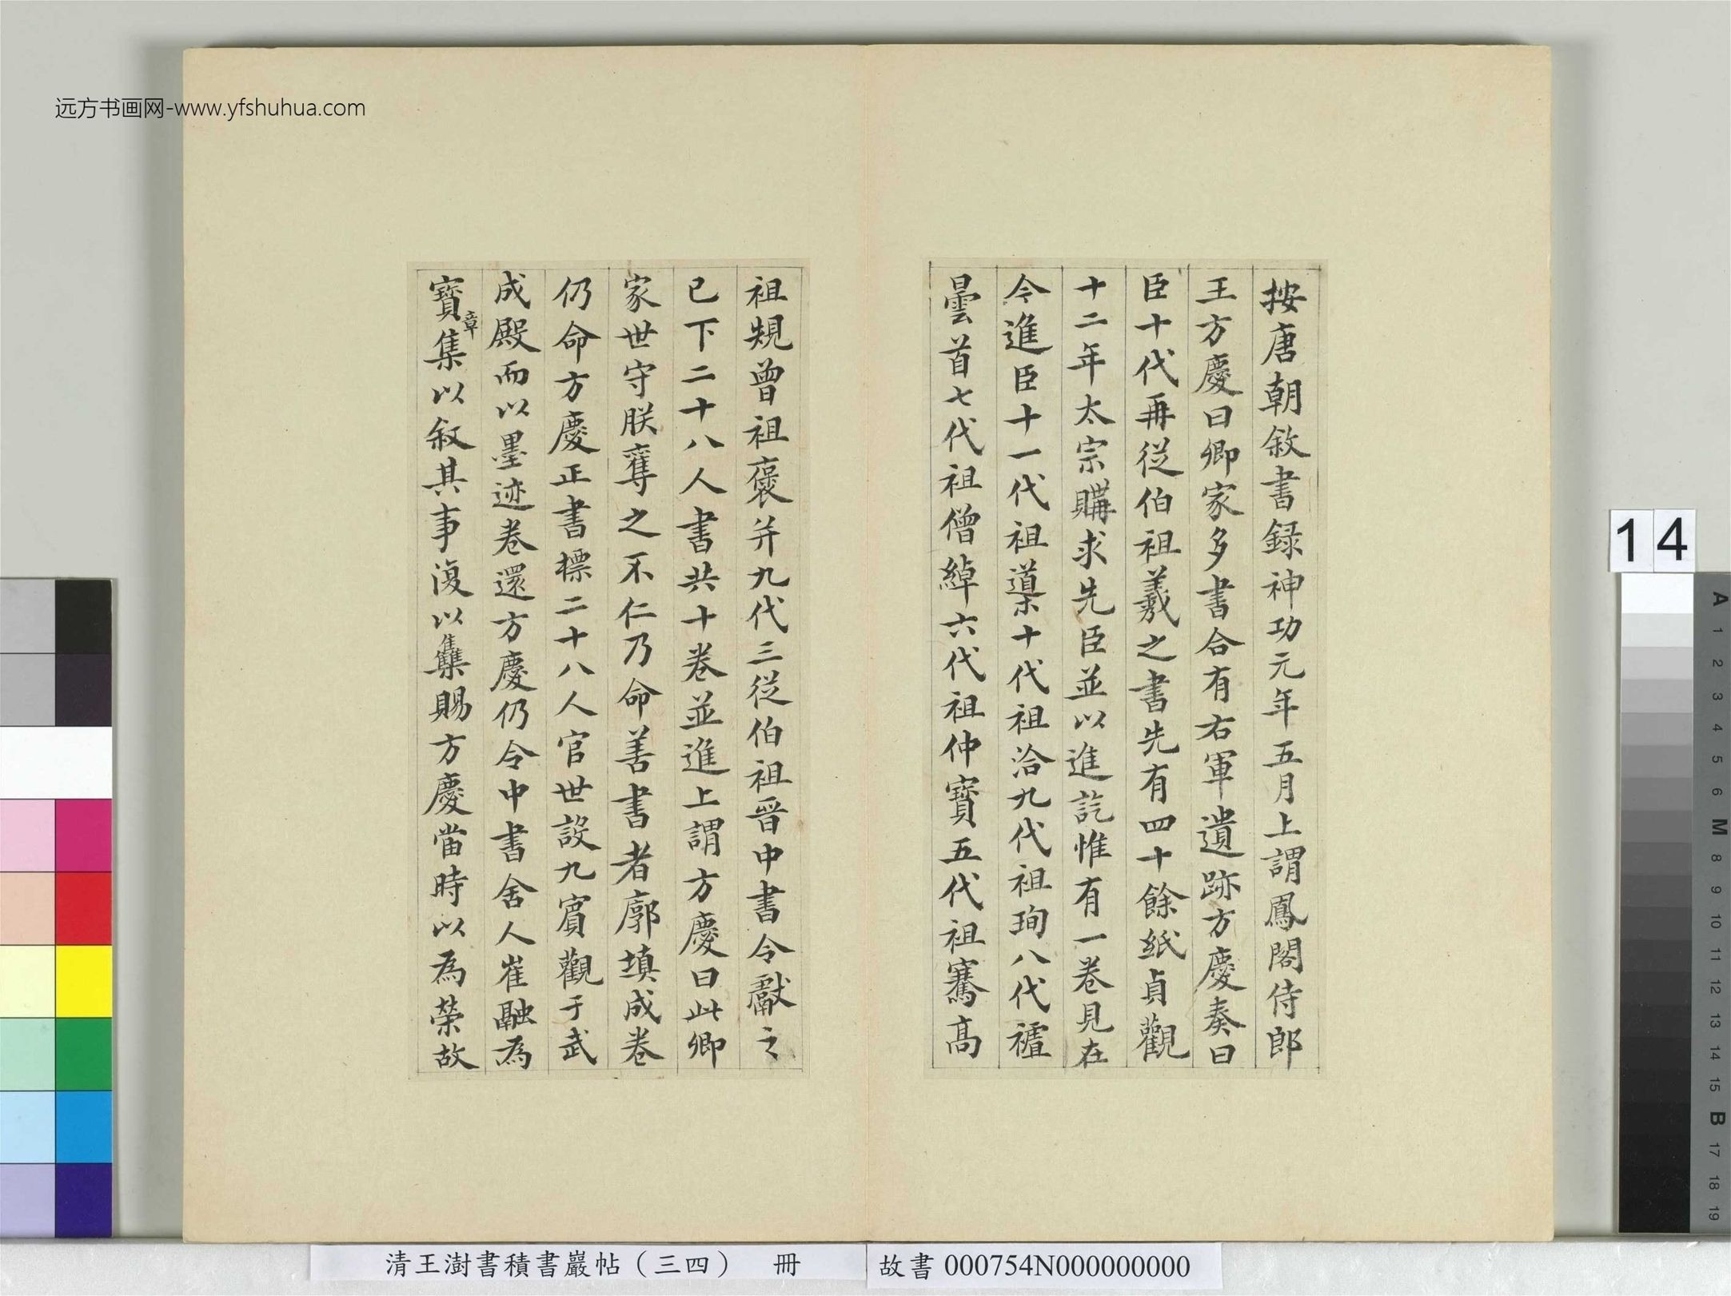 远方书画网-www.yfshuhua.com
按唐朝敘書録神功元年五月上謂鳳閣侍郎
王方慶曰卿家多書合有右軍遺跡方慶奏曰
臣十代再從伯祖羲之書先有四十餘紙貞觀
十二年太宗購求先臣並以進訖惟有一卷見在
今進臣十一代祖導十代祖洽九代祖珣八代禮
曇首七代祖僧綽六代祖仲寶五代祖騫高
祖規曾祖褒并九代三從伯祖晉中書令獻之
已下二十八人書共十卷並進上謂方慶曰此卿
家世守朕奪之不仁乃命善書者廓填成卷
仍命方慶正書標二十八人官世設九賓觀于武
成殿而以墨迹卷還方慶仍令中書舍人崔融為
寶章集以叙其事復以集賜方慶當時以為榮故
14
A 1 2 3 4 5 6 M 8 9 10 11 12 13 14 15 B 17 18 19
清王澍書積書巖帖（三四） 冊
故書 000754N000000000